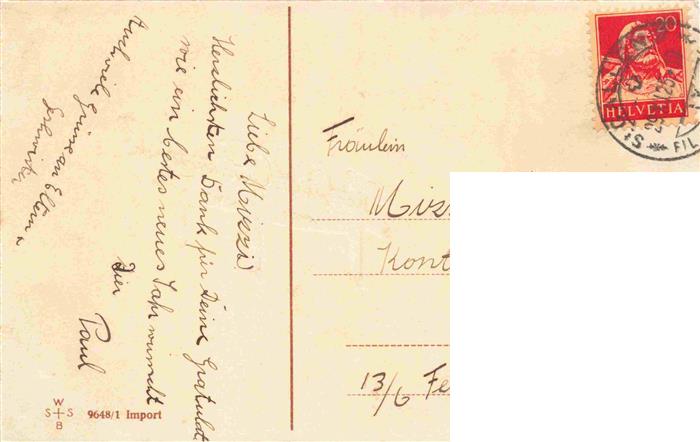 Liebe Mizzi
Herzlichsten Dank für Deine Gratulat.
wie ein bestes neues Jahr wünscht
Dier
Paul
Auch viele Grüsse an Eltern u
Fräulein
Mizz
Kont
13/6 Fe
20
HELVETIA
FIL
W
S S
B
9648/1 Import